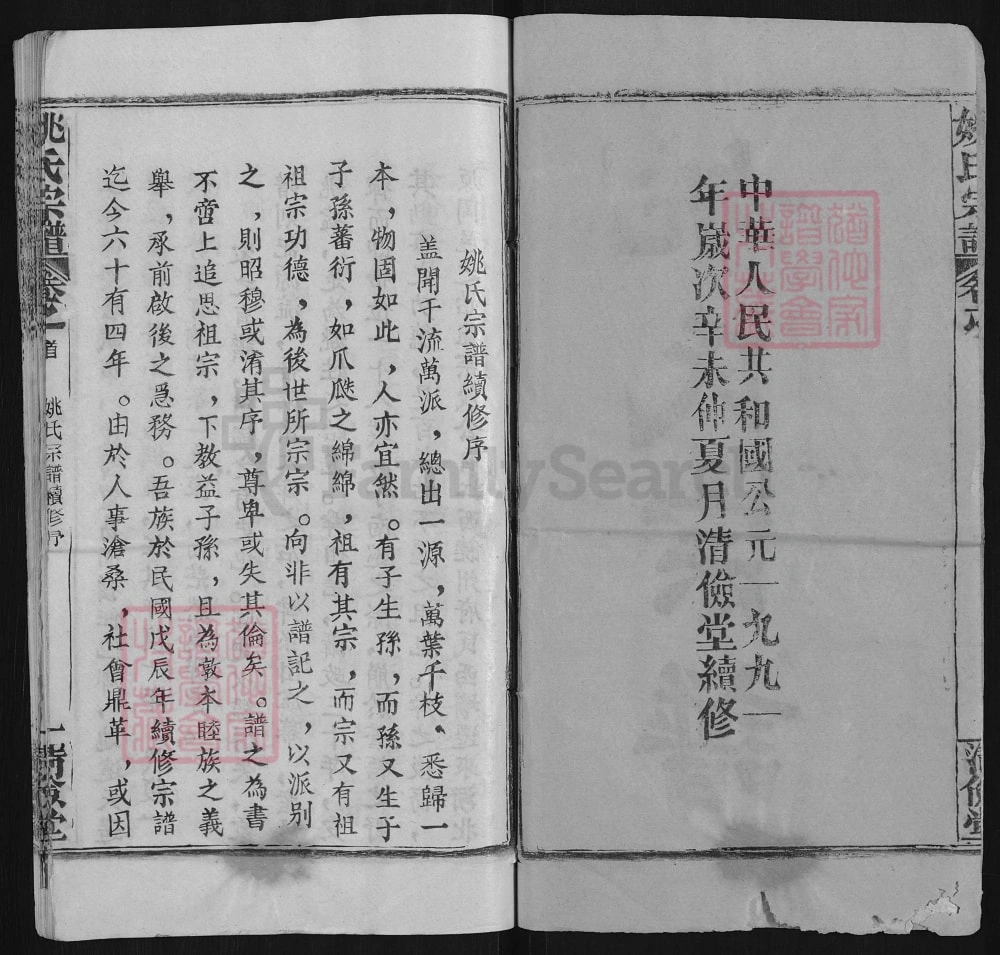 中華人民共和國公元一九九一
年歲次辛未仲夏月清儉堂續修
姚氏宗譜續修序
蓋聞千流萬派，總出一源，萬葉千枝。悉歸一
本，物固如此，人亦宜然。有子生孫，而孫又生子
子孫蕃衍，如爪瓞之綿綿，祖有其宗，而宗又有祖
祖宗功德，為後世所宗宗。向非以譜記之，以派別
之，則昭穆或淆其序，尊卑或失其倫矣。譜之為書
不啻上追思祖宗，下教益子孫，且為敦本睦族之義
舉，承前啟後之急務。吾族於民國戊辰年續修宗譜
迄今六十有四年。由於人事滄桑，社會鼎革，或因
姚氏宗譜
卷之一首
姚氏宗譜續修序
一清儉堂
姚氏宗譜
清儉堂
FamilySearch